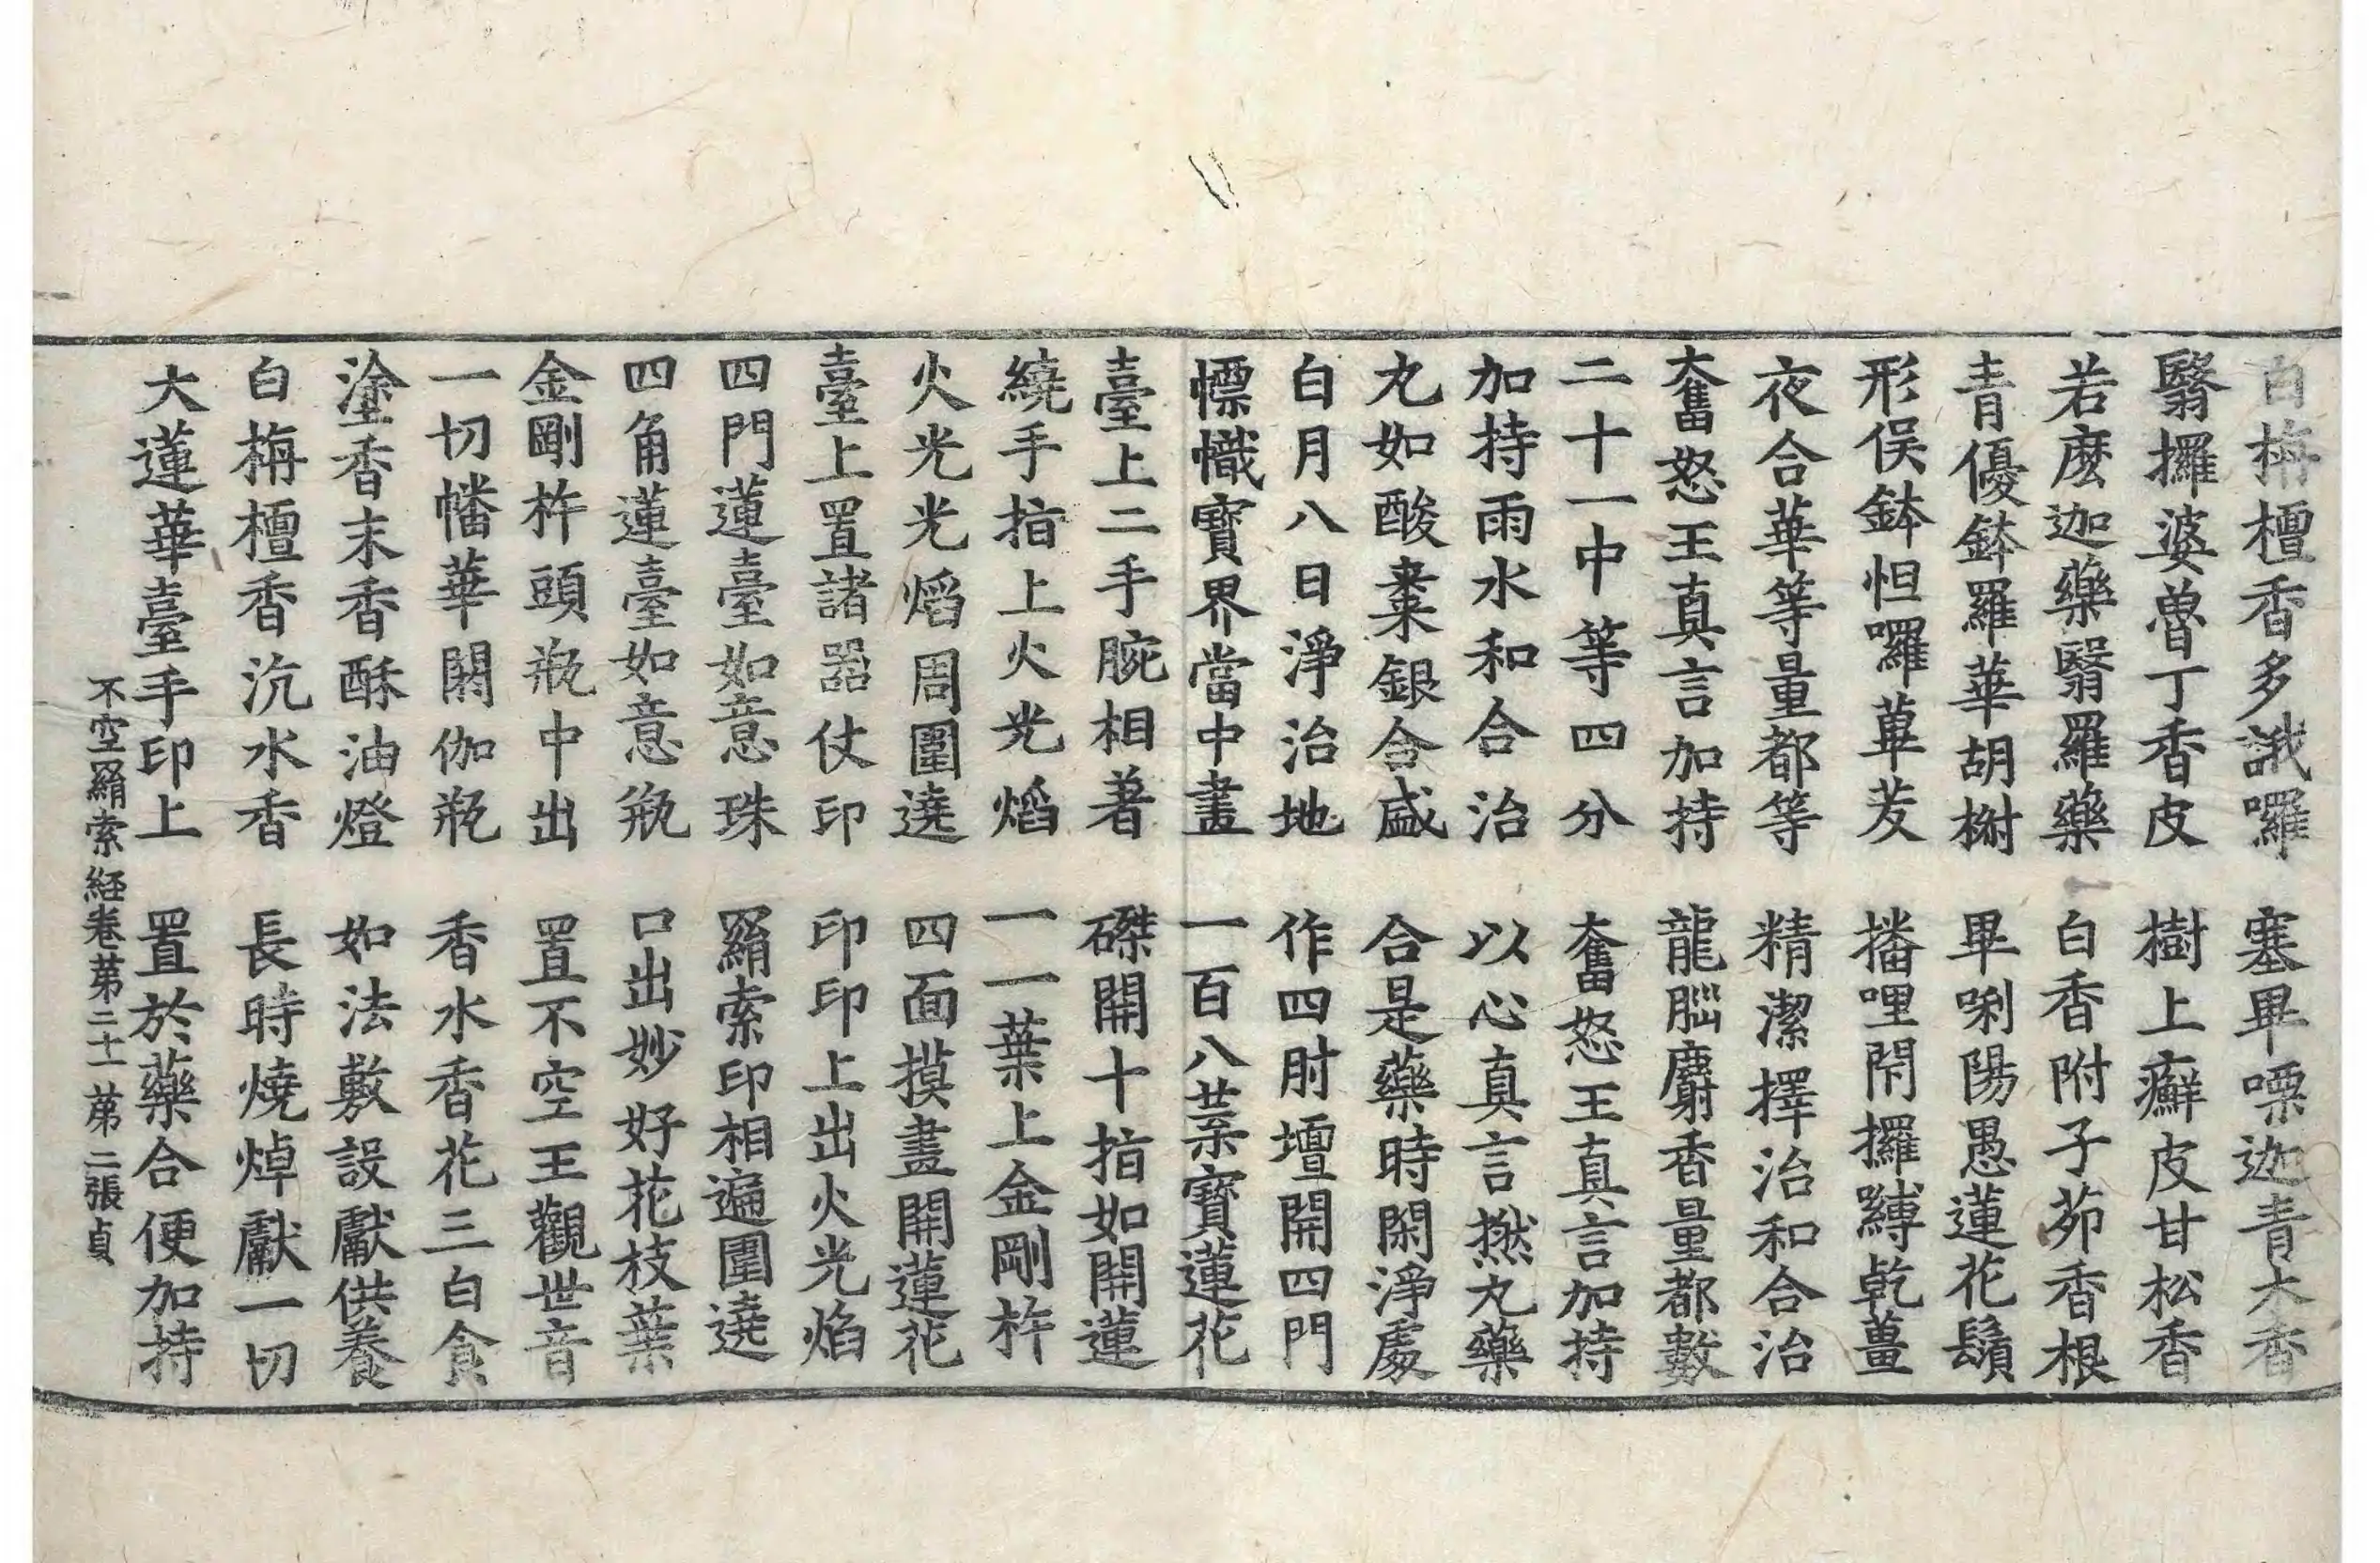 白栴檀香多誐囉　塞畢㗚迦青大香
翳攞婆魯丁香皮　樹上癬皮甘松香
若麼迦藥翳羅藥　白香附子茆香根
青優鉢羅華胡榭　畢唎陽愚蓮花鬚
形俣鉢怛囉蓽茇　播哩閇攞嚩乾薑
夜合華等量都等　精潔擇治和合治
奮怒王真言加持　龍腦麝香量都數
二十一中等四分　奮怒王真言加持
加持雨水和合治　以心真言撚丸藥
丸如酸棗銀合盛　合是藥時閑淨處
白月八日淨治地　作四肘壇開四門
幖幟寶界當中畫　一百八葉寶蓮花
臺上二手腕相著　磔開十指如開蓮
繞手指上火光焰　一一葉上金剛杵
火光光焰周圍遶　四面摸畫開蓮花
臺上置諸器仗印　印印上出火光焰
四門蓮臺如意珠　羂索印相遍圍遶
四角蓮臺如意瓶　口出妙好花枝葉
金剛杵頭瓶中出　置不空王觀世音
一切幡華閼伽瓶　香水香花三白食
塗香末香酥油燈　如法敷設獻供養
白栴檀香沉水香　長時燒焯獻一切
大蓮華臺手印上　置於藥合便加持
不空羂索經卷第二十一　第二張　貞